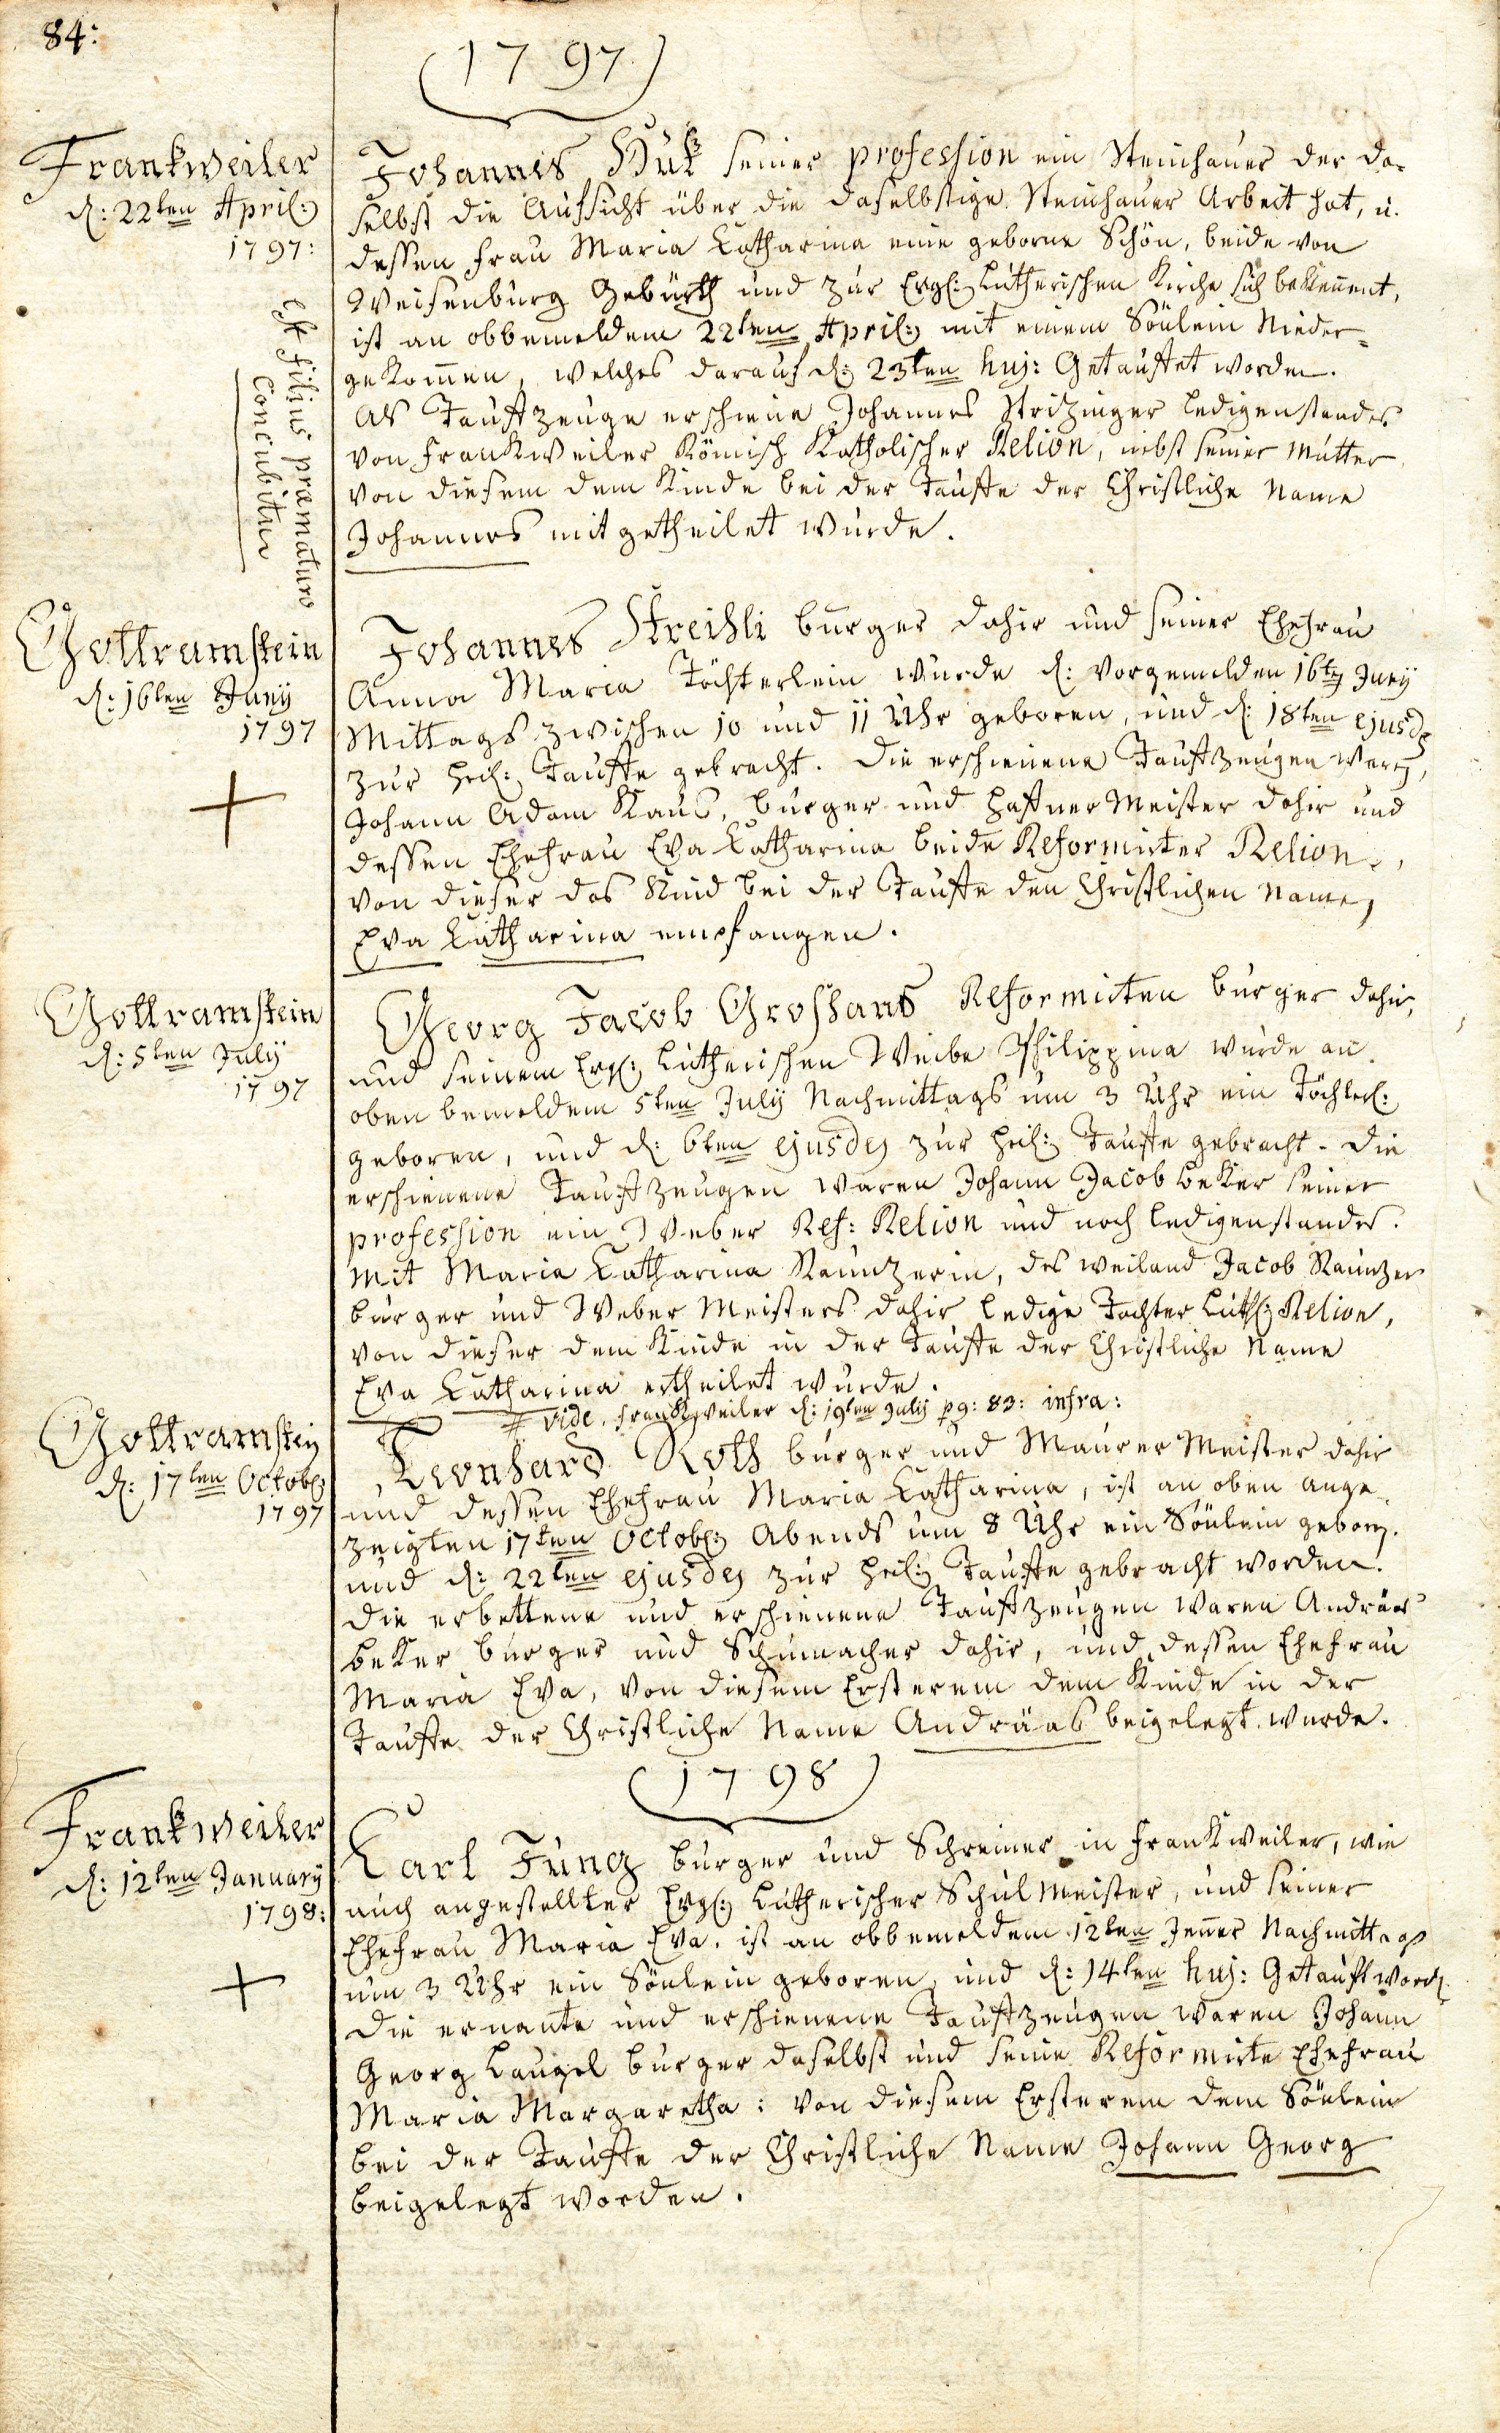 84:
(1797.)
Frankweiler
d: 22ten April:
1797:
Est filius præmaturo
Concubitur
Johannes Huk seiner profession ein Steinhauer der da-
selbst die Aufsicht über die daselbstige Steinhauer Arbeit hat, u.
dessen Frau Maria Catharina eine geborne Schön, beide von
Weisenburg Gebürth und zur Evgl: Lutherischen Kirche sich bekennent,
ist an obbemeldem 22ten April: mit einem Sönlein Nieder-
gekommen, welches darauf d: 23ten huj: Getauftet worden.
Als Tauftzeuge erschiene Johannes Stritzinger ledigenstandes
von Frankweiler Römisch Katholischer Relion, nebst seiner Mutter
von diesem dem Kinde bei der Taufte der Christliche Name
Johannes mitgetheilet wurde.
Gottramstein
d: 16ten Juny
1797
Johannes Streißli burger dahir und seiner Ehefrau
Anna Maria Töchterlein wurde d: Vorgemelden 16ten Juny
Mittags zwischen 10 und 11 Uhr geboren, und d: 18ten ejusd
zur heil: Taufte gebracht. Die erschienene Tauftzeugen waren,
Johann Adam Kaus, burger und Hafner Meister dahir und
dessen Ehefrau Eva Catharina beide Reformirter Relion,
von dieser das Kind bei der Taufte den Christlichen Name,
Eva Catharina empfangen.
Gottramstein
d: 5ten July
1797
Georg Jacob Großhans Reformirten burger dahir,
und seinem Evg: Lutherischen Weibe Philippina wurde an
oben bemeldem 5ten July Nachmittags um 3 Uhr ein Töchterl:
geboren, und d: 6ten ejusdem zur heil: Taufte gebracht. Die
erschienene Tauftzeugen waren Johann Jacob beker seiner
profession ein Weber Ref: Relion und noch ledigenstandes.
Mit Maria Catharina Raunzerin, des weiland Jacob Raunzer
burger und Weber Meisters dahir ledige Tochter Luth: Relion,
von dieser dem Kinde in der Taufte der Christliche Name
Eva Catharina ertheilet wurde.
# vide, Frankweiler d: 19ten July pg: 83: infra:
Gottramstein
d: 17ten Octob:
1797
Leonhard Roth burger und Maurer Meister dahir
und dessen Ehefrau Maria Catharina, ist an oben ange-
zeigten 17ten Octob: Abends um 8 Uhr ein Sönlein geboren.
und d: 22ten ejusdem zur heil: Taufte gebracht worden.
Die erbettene und erschienene Tauftzeugen waren Andräas
beker burger und Schumacher dahir, und dessen Ehefrau
Maria Eva, von diesem Ersterem dem Kinde in der
Taufte der Christliche Name Andräas beigelegt wurde.
(1798)
Frankweiler
d: 12ten January
1798:
Carl Jung burger und Schreiner in Frankweiler, wie
auch angestellter Evg: Lutherischer Schulmeister, und seiner
Ehefrau Maria Eva, ist an obbemeldem 12ten Jener Nachmittags
um 3 Uhr ein Sönlein geboren, und d: 14ten huj: Getauft word.
Die ernante und erschienene Tauftzeugen waren Johann
Georg Laugel burger daselbst und seine Reformirte Ehefrau
Maria Margaretha: von diesem Ersterem dem Sönlein
bei der Taufte der Christliche Name Johann Georg
beigelegt worden.